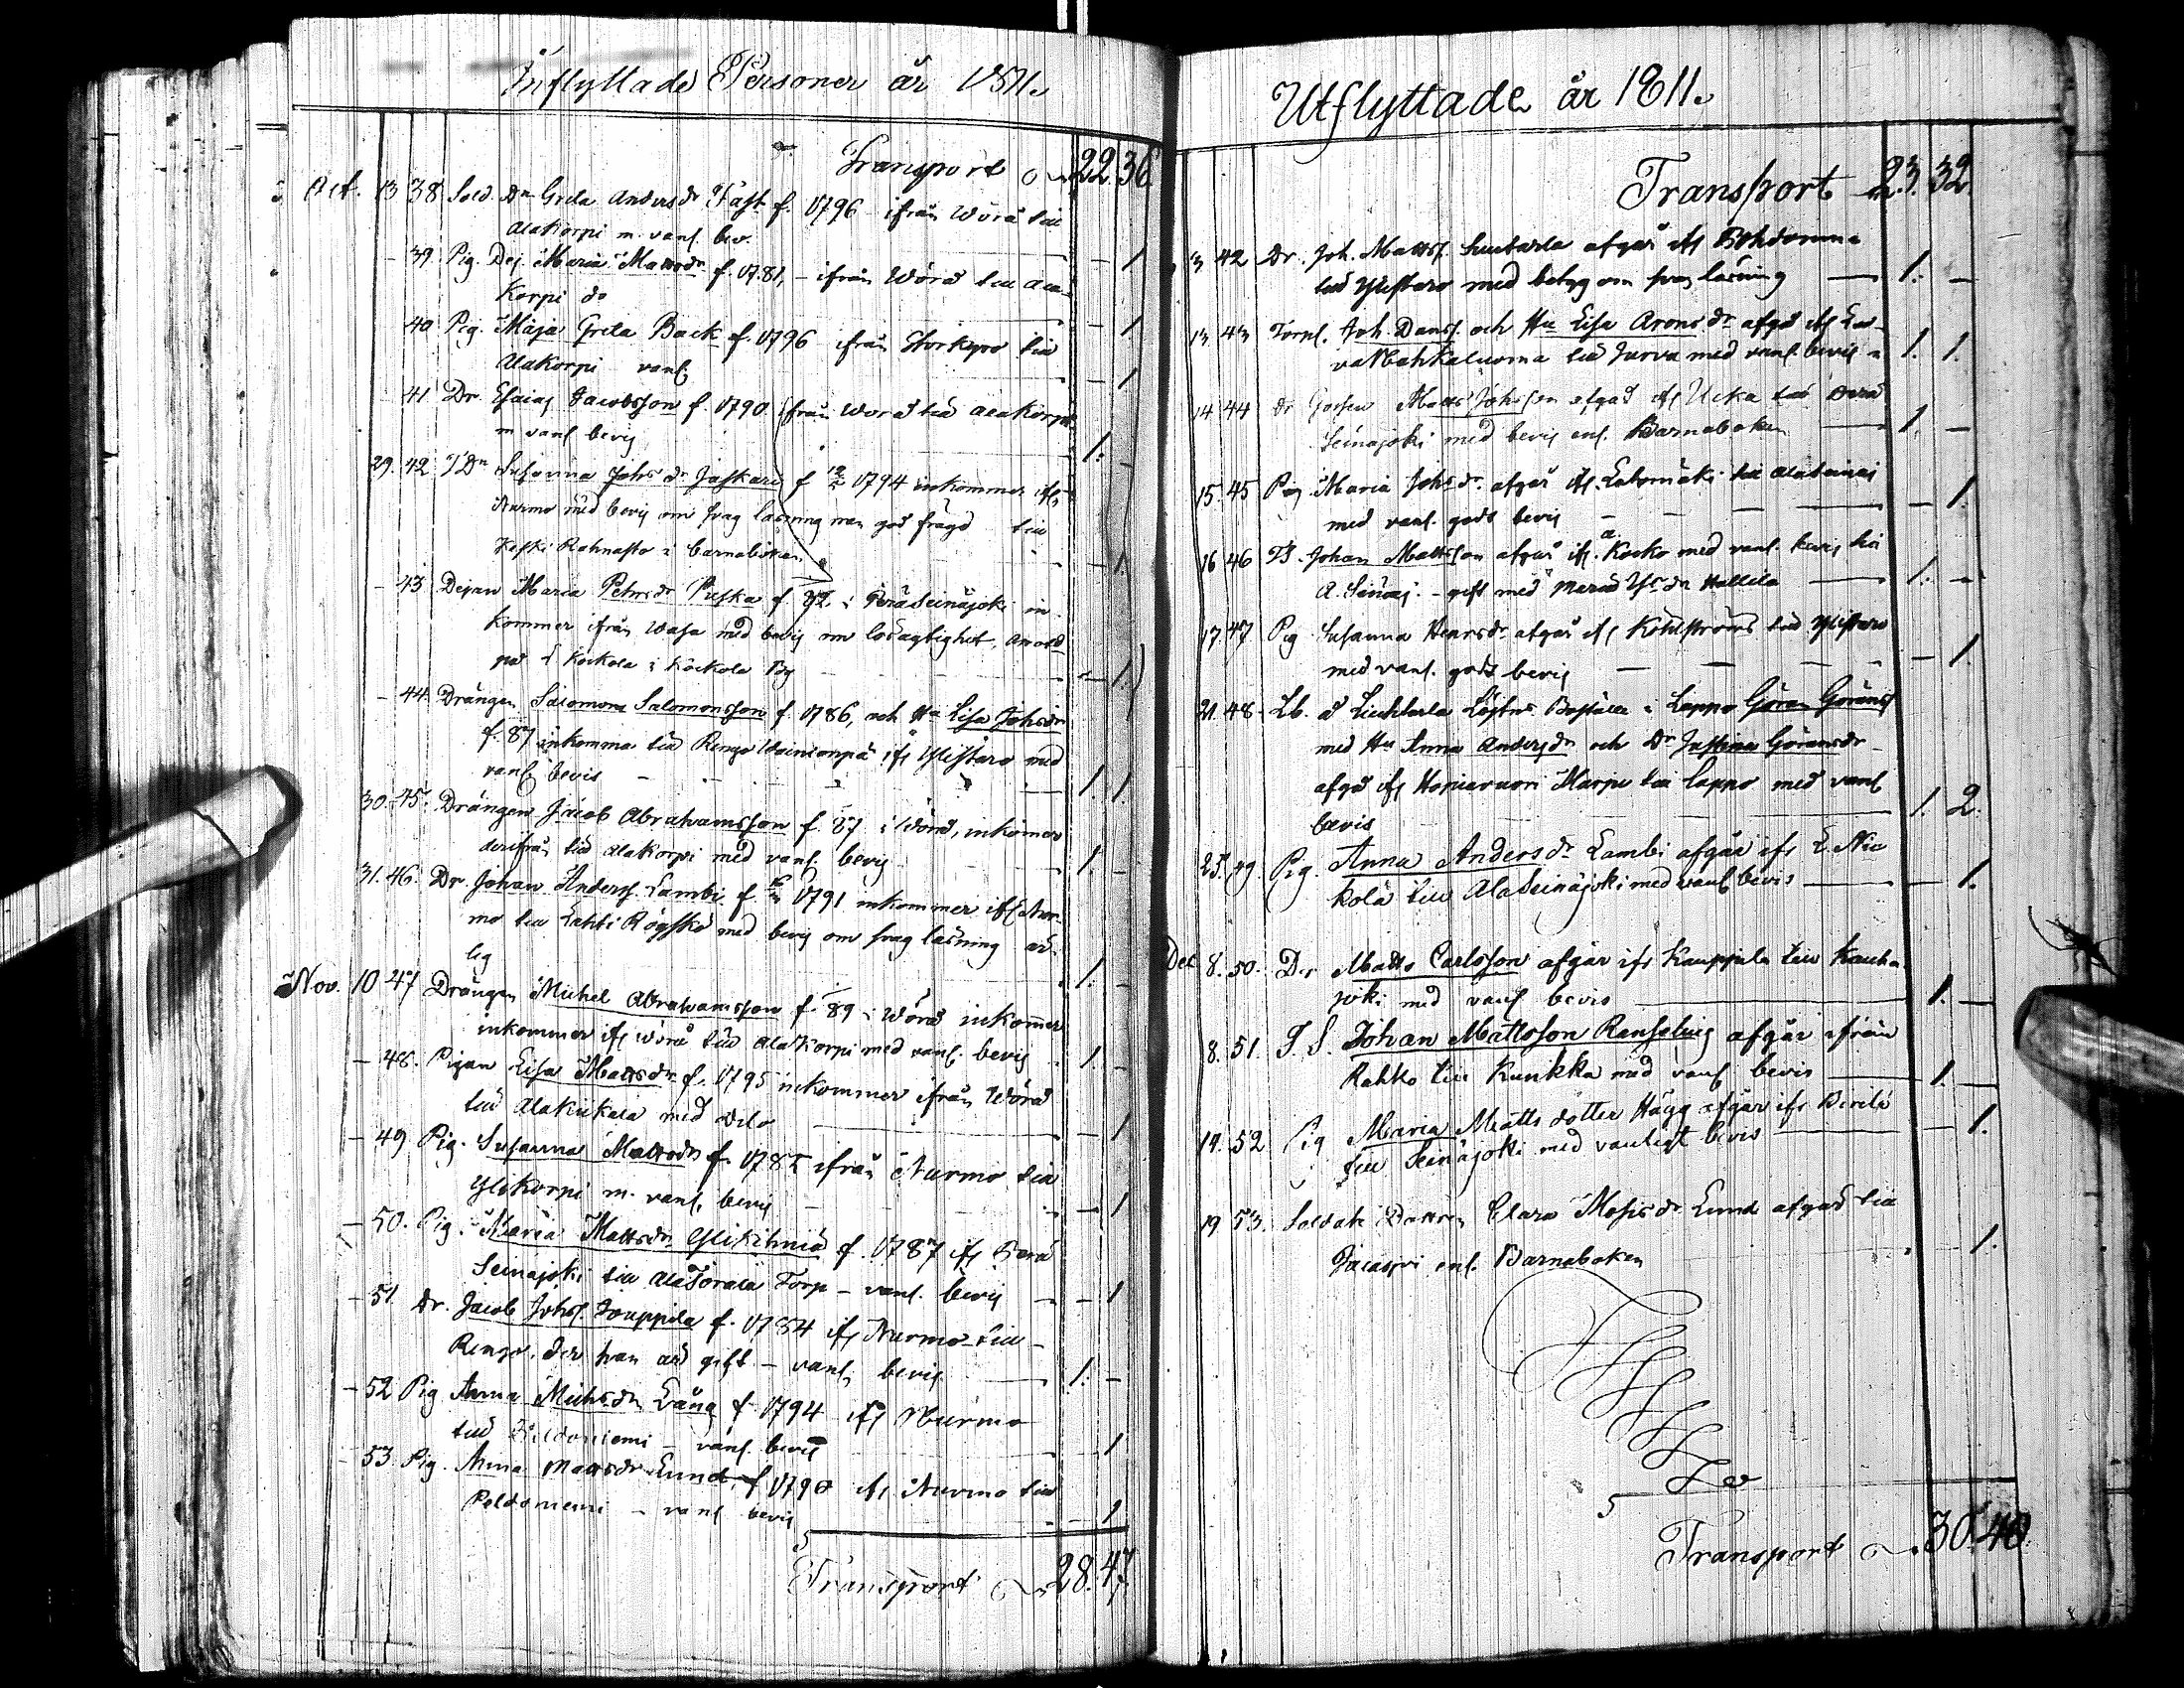 Inflyttade Personer år 1811.
Transport 22 36
Oct. 13 38 Sold. Dr Greta Andersdr Fast f. 1796 ifrån Wörå till
Alakorpi m. vanl. bev. - 1
- 39 Pig. Dej. Maria Mattsdr f. 1781, - ifrån Wörå till Ala-
korpi do - 1
40 Pig. Maja Greta Back f. 1796 ifrån Storkyro till
Alakorpi vanl. - 1
41 Dr. Esaias Jacobsson f. 1790 ifrån Wörå till Alakorpi
m vanl bevis 1. -
29. 42 Susanna Johsdr Jaskari f 1794 inkommer ifr
Nurmo med bevis om svag läsning men god frägd till
Keski Rahnasto i barnaboken - 1
- 43 Dejan Maria Petersdr Puska f. 92. i Peräseinäjoki in
kommer ifrån Wasa med bevis om lösagtighet,
på Kockola i Kockola By - 1
- 44. Drängen Salomon Salomonsson f. 1786, och Hu Lisa Johsdr
f. 87 inkomma till Rengo ifr Ylistaro med
vanl bevis 1. 1.
30. 45. Drängen Jacob Abrahamsson f. 87 i Wörå, inkommer
derifrån till Alakorpi med vanl. bevis 1. -
31. 46. Dr. Johan Anderss. Lambi f. 1791 inkommer ifr Nur-
mo till Lahti Rögskö med bevis om svag läsning är-
lig 1. -
Nov. 10 47 Drängen Michel Abrahamsson f 89 i Wörå inkommer
inkommer ifr Wörå till Alakorpi med vanl. bevis 1. -
- 48. Pigan Lisa Mattsdr f. 1795 inkommer ifrån Wörå
till Alakiikala med Dito - 1
- 49 Pig. Susanna Mattsdr f. 1785 ifrån Nurmo till
Ylikorpi m. vanl. bevis - 1
- 50. Pig. Maria Mattsdr Ylikihniä f. 1787 ifr Perä
Seinäjoki till Alatörälä Torp - vanl. bevis - 1
- 51 Dr. Jacob Johss. Jouppila f. 1784 ifr Nurmo till
Rengo, der han är gift - vanl. bevis 1. -
- 52 Pig Anna Michsdr Lång f 1794 ifr Nurmo
till Peldoniemi - vanl. bevis - 1
- 53. Pig. Anna Mattsdr Lund, f 1790 ifr Nurmo till
Peldoniemi - vanl bevis - 1
Transport 28. 47.
Utflyttade år 1811.
Transport 23. 32.
13 42 Dr. Joh. Mattss. afgår ifr
till Ylistaro med betyg om svag läsning 1. -
13 43 Torpl. Joh. Danss. och Hu Lisa Aronsdr afgå ifr
till Jurva med vanl. bevis 1. 1.
14 44 Dr Gossen Matts Johsson afgår ifr Ucka till Perä
Seinäjoki med bevis enl. Barnaboken 1. -
15. 45 Pig Maria Johsdr. afgår ifr. till Alaseinäj
med vanl. godt bevis - 1.
16 46 B. Johan Mattsson afgår ifr. Kocko med vanl. bevis till
A. Seinäj. - gift med Maria Hallila 1. -
17. 47 Pig Susanna Henrsdr afgår ifr Kohlströms till Ylistaro
med vanl. godt bevis - 1.
21. 48. Lb. å Liuhtarla Löjtns. Boställe i Lappo Göran Göranss
med Hu Anna Andersdr och Dr Justina Göransdr
afgå ifr Honiavuori Karpi till Lappo med vanl
bevis 1. 2.
25. 49. Pig. Anna Andersdr Lambi afgår ifr L. Nic
kola till Alaseinäjoki med vanl bevis - 1.
Dec 8. 50. Dr Matts Carlsson afgår ifr Kauppila till Kauha
joki med vanl bevis 1. -
8. 51. S. S. Johan Mattsson Renfeling afgår ifrån
Rahko till Kurikka med vanl bevis 1. -
19. 52 Pig Maria Matts dotter Hägg afgår ifr
till Seinäjoki med vanligt bevis - 1.
19 53. Soldate Dottren Clara Mosisdr Lund afgår till
enl. Barnaboken - 1.
Transport 30. 40.